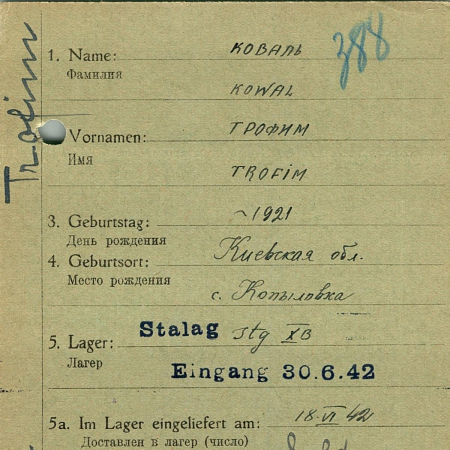 388
Trofim
1. Name: КОВАЛЬ
Фамилия
KOWAL
Vornamen: ТРОФИМ
Имя
TROFIM
3. Geburtstag: ~1921
День рождения
4. Geburtsort: Киевская обл.
Место рождения
с. Копыловка
5. Lager: Stalag Stg XB
Лагер
Eingang 30.6.42
5a. Im Lager eingeliefert am: 18 VI 42
Доставлен в лагер (число)